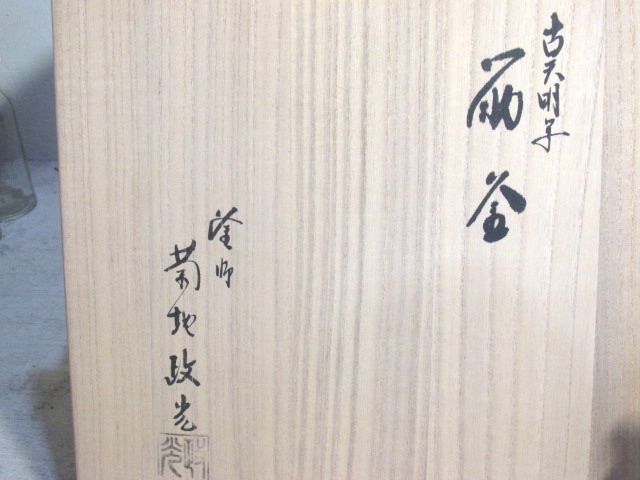 古天明写
筋釜
釜師
菊地政光